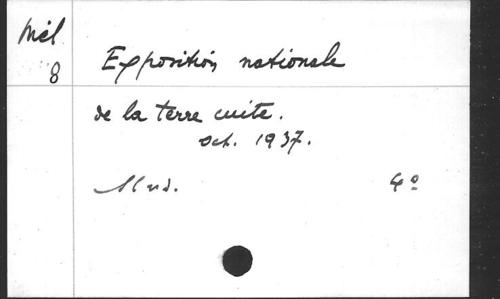 Mél
8
Exposition nationale
de la terre cuite.
oct. 1937.
4º